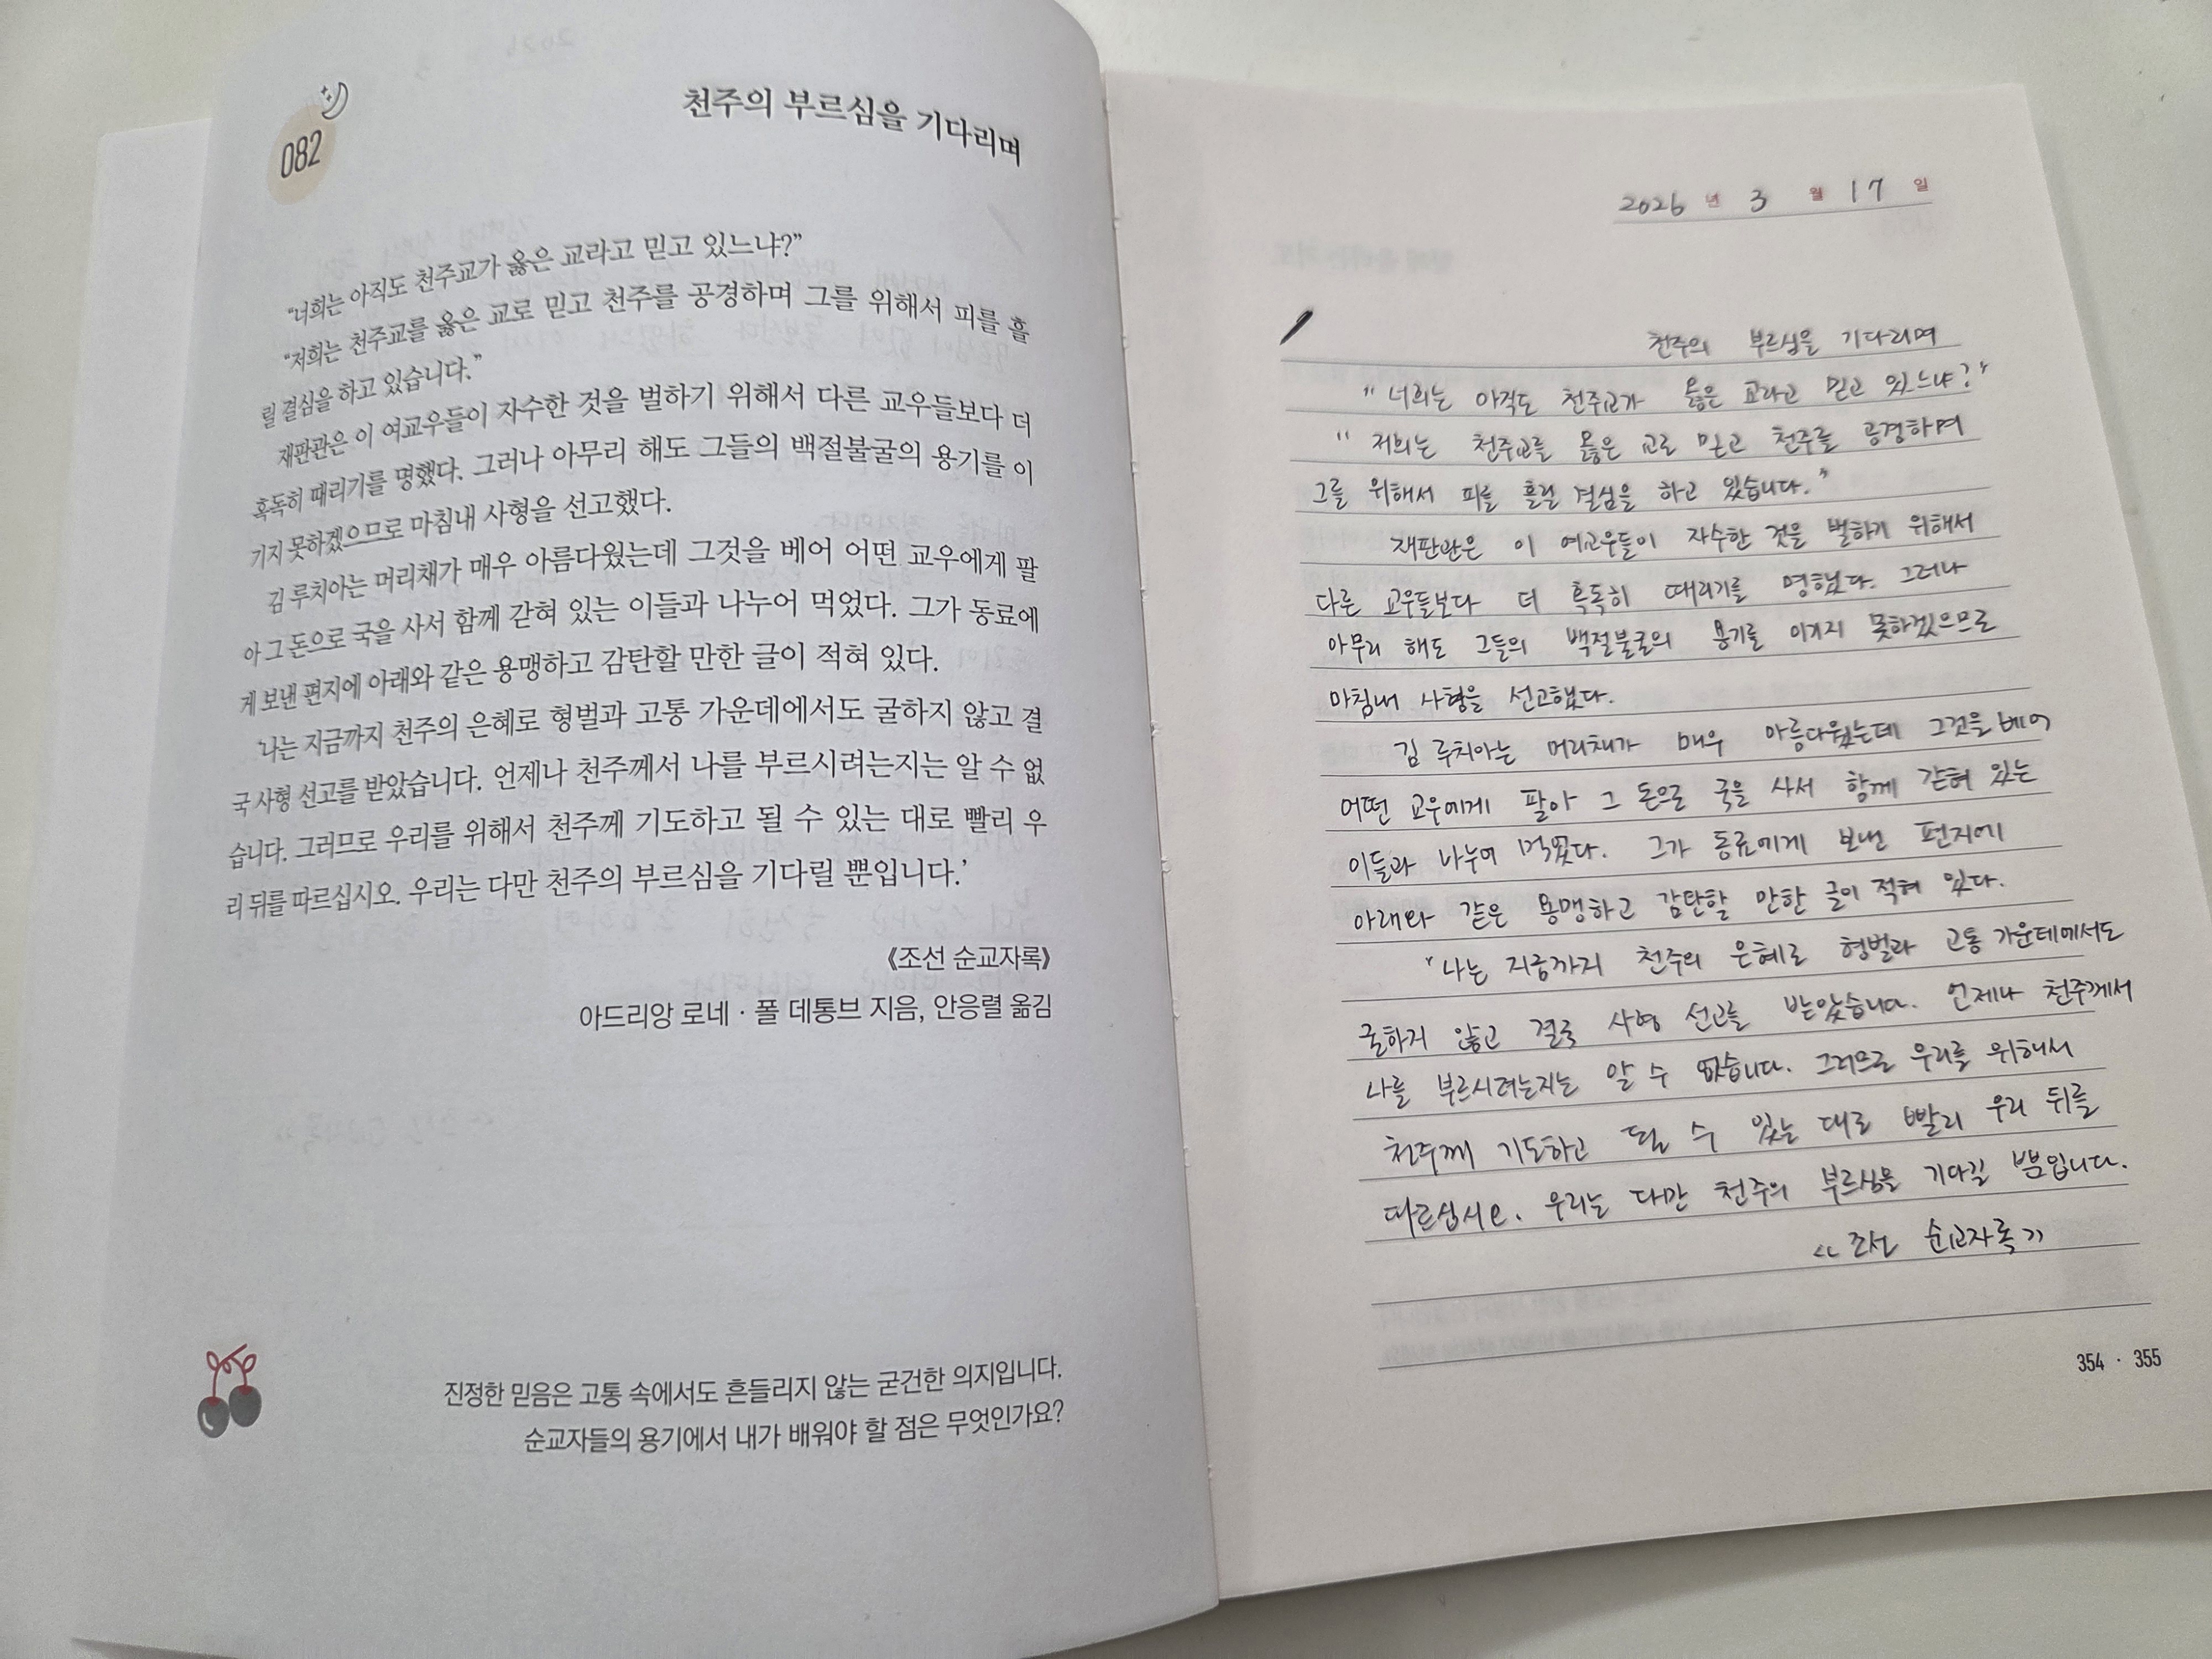 082
천주의 부르심을 기다리며
“너희는 아직도 천주교가 옳은 교라고 믿고 있느냐?”
“저희는 천주교를 옳은 교로 믿고 천주를 공경하며 그를 위해서 피를 흘
릴 결심을 하고 있습니다.”
재판관은 이 여교우들이 자수한 것을 벌하기 위해서 다른 교우들보다 더
혹독히 때리기를 명했다. 그러나 아무리 해도 그들의 백절불굴의 용기를 이
기지 못하겠으므로 마침내 사형을 선고했다.
김 루치아는 머리채가 매우 아름다웠는데 그것을 베어 어떤 교우에게 팔
아 그 돈으로 국을 사서 함께 갇혀 있는 이들과 나누어 먹었다. 그가 동료에
게 보낸 편지에 아래와 같은 용맹하고 감탄할 만한 글이 적혀 있다.
‘나는 지금까지 천주의 은혜로 형벌과 고통 가운데에서도 굴하지 않고 결
국 사형 선고를 받았습니다. 언제나 천주께서 나를 부르시려는지는 알 수 없
습니다. 그러므로 우리를 위해서 천주께 기도하고 될 수 있는 대로 빨리 우
리 뒤를 따르십시오. 우리는 다만 천주의 부르심을 기다릴 뿐입니다.’
《조선 순교자록》
아드리앙 로네 · 폴 데통브 지음, 안응렬 옮김
진정한 믿음은 고통 속에서도 흔들리지 않는 굳건한 의지입니다.
순교자들의 용기에서 내가 배워야 할 점은 무엇인가요?
2026 년 3 월 17 일
천주의 부르심을 기다리며
" 너희는 아직도 천주교가 옳은 교라고 믿고 있느냐?"
" 저희는 천주교를 옳은 교로 믿고 천주를 공경하며
그를 위해서 피를 흘릴 결심을 하고 있습니다."
재판관은 이 여교우들이 자수한 것을 벌하기 위해서
다른 교우들보다 더 혹독히 때리기를 명했다. 그러나
아무리 해도 그들의 백절불굴의 용기를 이기지 못하겠으므로
마침내 사형을 선고했다.
김 루치아는 머리채가 매우 아름다웠는데 그것을 베어
어떤 교우에게 팔아 그 돈으로 국을 사서 함께 갇혀 있는
이들과 나누어 먹었다. 그가 동료에게 보낸 편지에
아래와 같은 용맹하고 감탄할 만한 글이 적혀 있다.
'나는 지금까지 천주의 은혜로 형벌과 고통 가운데에서도
굴하지 않고 결국 사형 선고를 받았습니다. 언제나 천주께서
나를 부르시려는지는 알 수 없습니다. 그러므로 우리를 위해서
천주께 기도하고 될 수 있는 대로 빨리 우리 뒤를
따르십시오. 우리는 다만 천주의 부르심을 기다릴 뿐입니다.
<< 조선 순교자록 >>
354 · 355